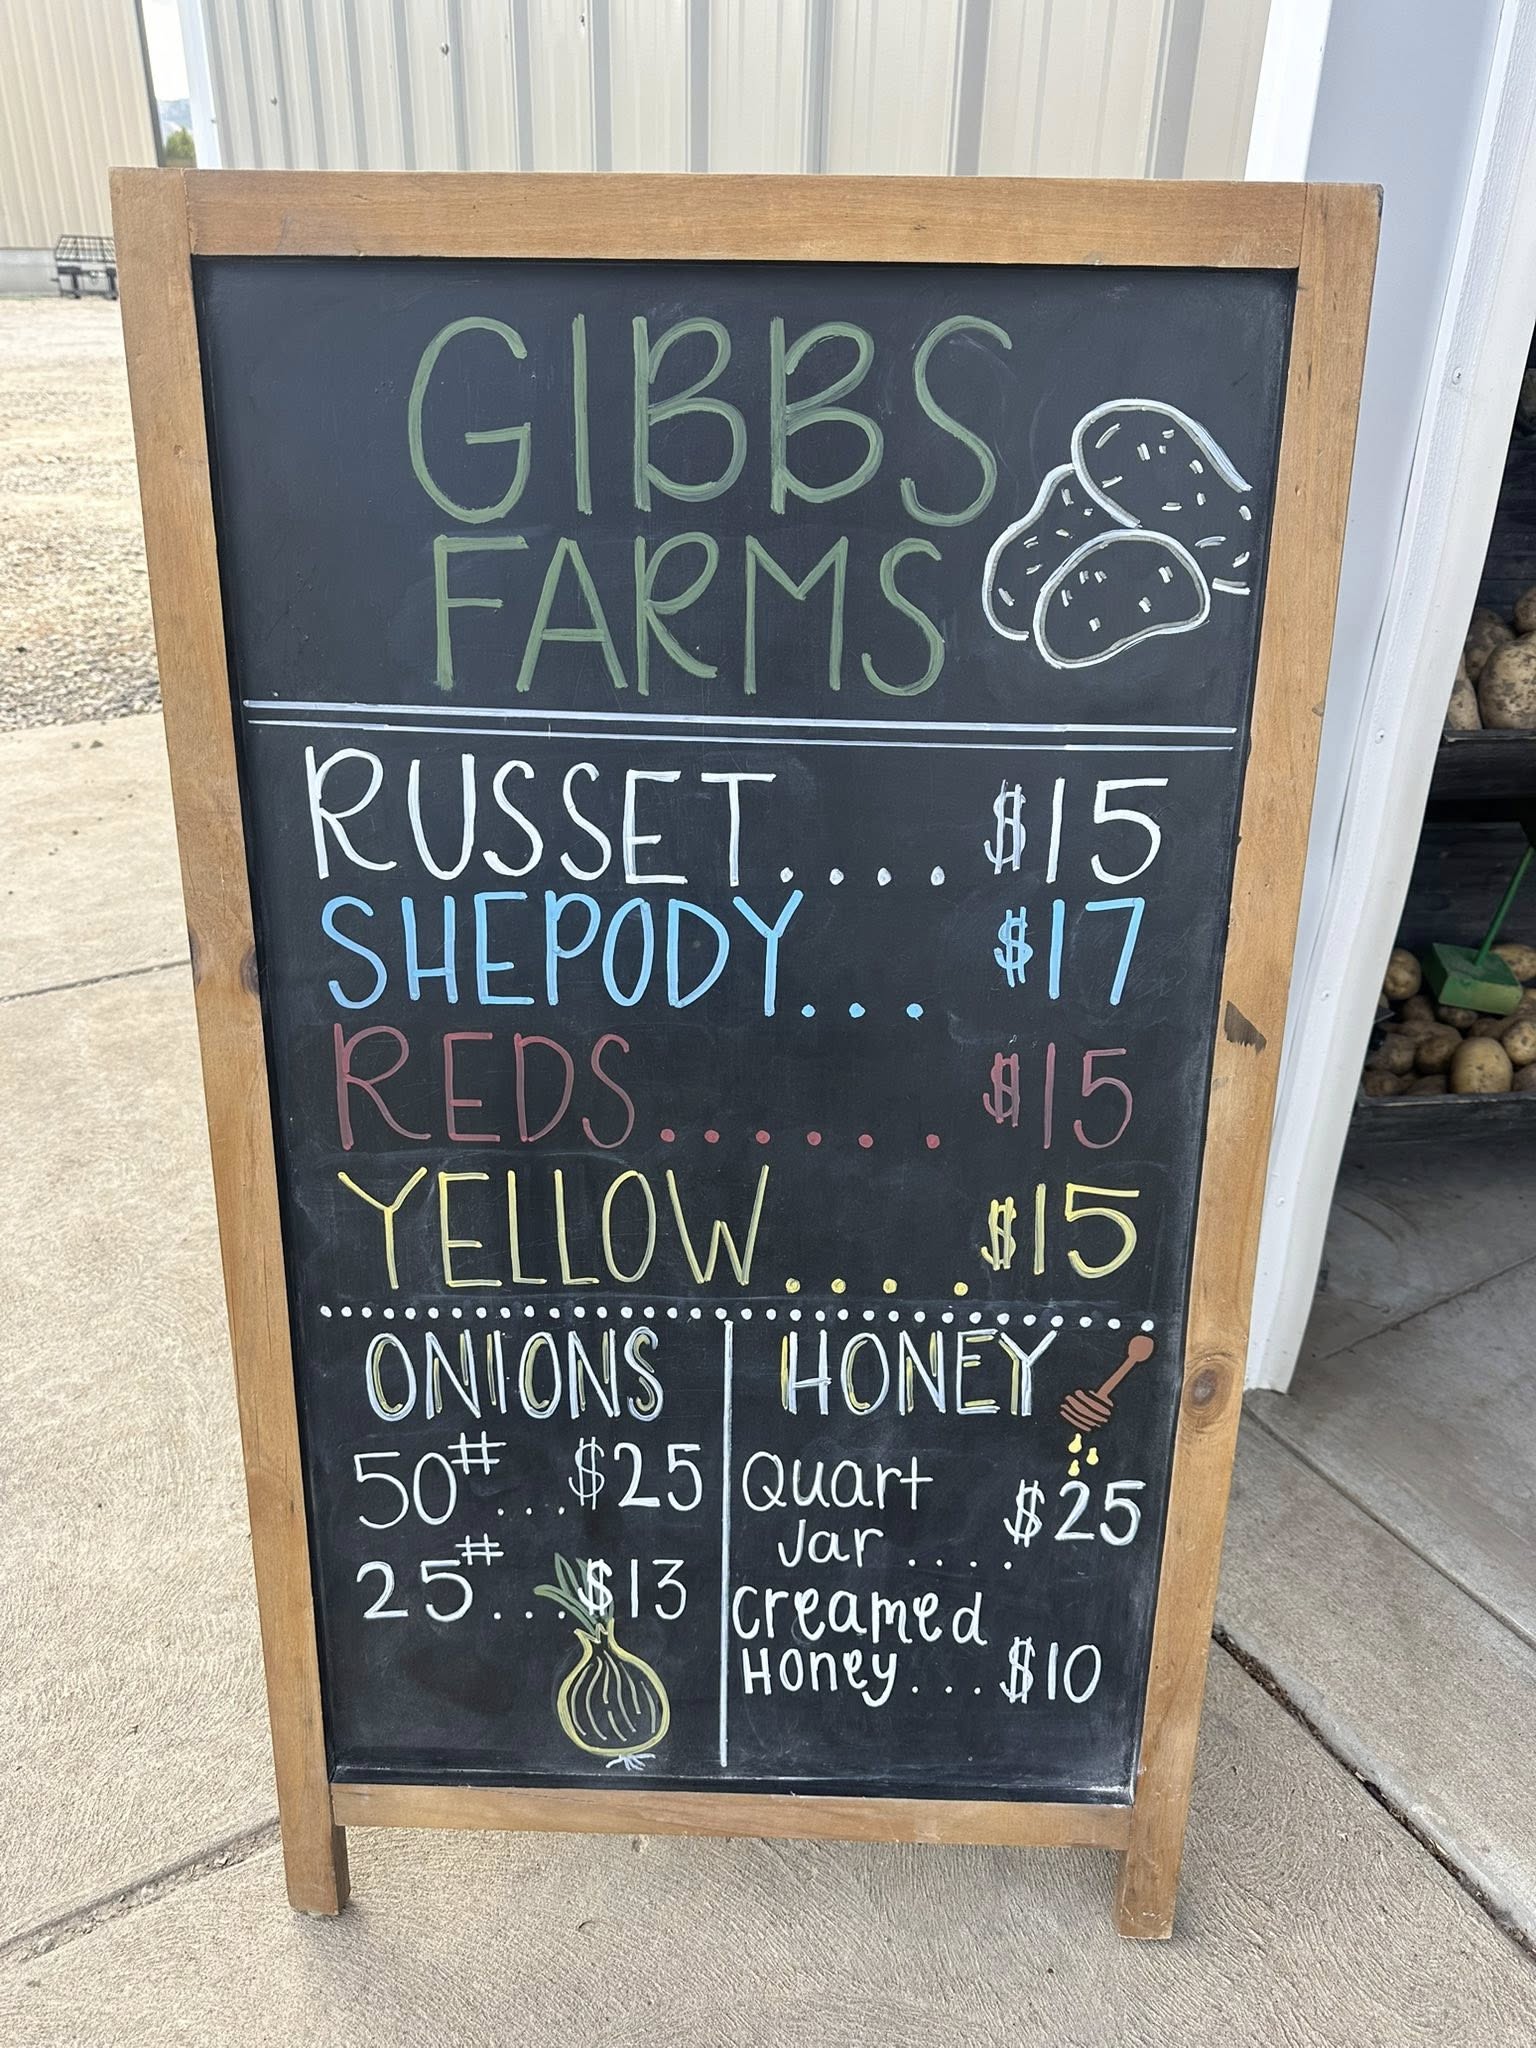 GIBBS
FARMS
RUSSET.... $15
SHEPODY... $17
REDS...... $15
YELLOW.... $15
ONIONS
50#...$25
25#...$13
HONEY
Quart
Jar .... $25
creamed
Honey...$10